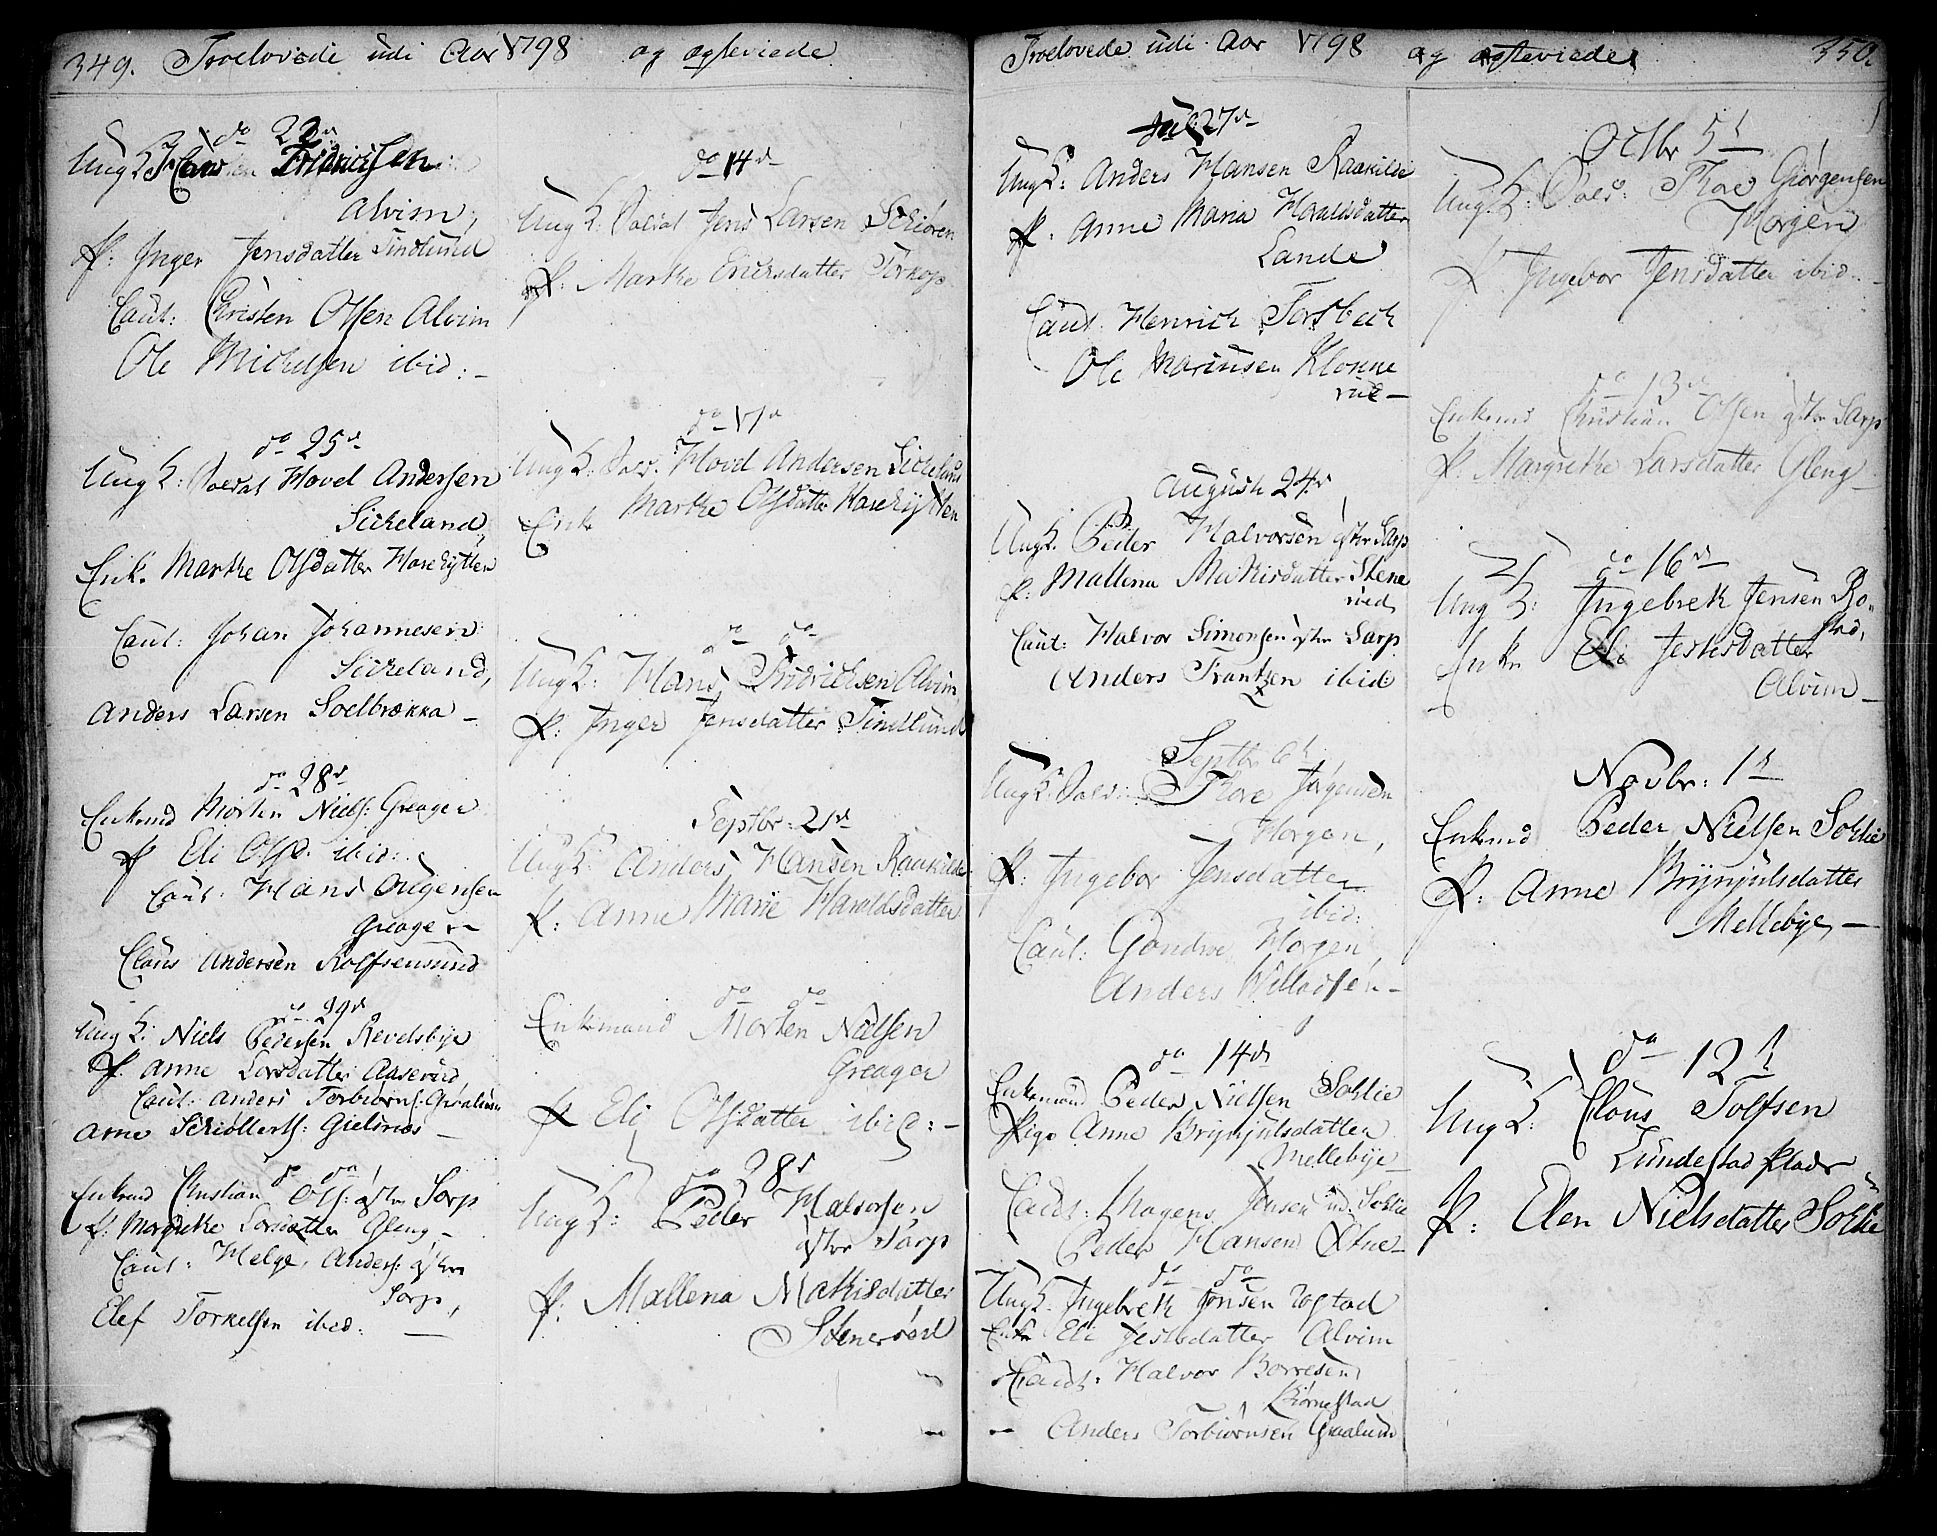 349. Troelovede udi Aar 1798 og ægteviede
do 22d
Ung K: Hans Fridrichsen
Alvim,
P: Inger Jensdatter Tindlund
Caut: Christen Olsen Alvim
Ole Michelsen ibid:
do 25d
Ung K: Soldat Hovel Andersen
Sickeland,
Enk. Marthe Olsdatter Harehytten
Caut: Johan Johannesen
Sickeland,
Anders Larsen Soelbrække
do 28d
Enkemd Morten Niels: Greager
P Eli Olsd. ibid:
Caut: Hans Ougensen
Greager
Claus Andersen Rolfsensund
do 29d
Ung K: Niels Pedersen Revelsbye
P. Anne Larsdatter Aaserud
Caut: Anders Torbiørns: Graalum
Arne Schiøllerts: Gielsnæs
do do
Enkemd Christian Ols: østre Sarp
P. Margrethe Larsdatter Gleng
Caut: Helge Anders: østre
Sarp,
Elef Torkelsen ibid:
do 14d
Ung K: Soldat Jens Larsen Schiøren
P: Marthe Ericksdatter Torkop
do 17d
Ung K: Sold. Hovel Andersen Sickeland
Enk Marthe Olsdatter Harehytten
do do
Ung K: Hans Fridrichsen Alvim
P. Inger Jensdatter Tindlund
Septbr: 21d
Ung K: Anders Hansen Raakilde
P: Anne Marie Haraldsdatter
do do
Enkemand Morten Nielsen
Greager
P Eli Olsdatter ibid:
do 28d
Ung K: Peder Halvorsen
østre Sarp
P: Mallena Mathisdatter
Stenerød
Troelovede udi Aar 1798 og ægteviede 350.
Jul 27d
Ung K: Anders Hansen Raakilde
P. Anne Maria Haraldsdatter
Lande
Caut. Henrich Torsbech
Ole Mariusen Klonne
rud
August 24d
Ung K. Peder Halvorsen østre Sarp
P: Mallena Mathisdatter Stene
rød,
Caut: Halvor Simonsen østre Sarp
Anders Frantzen ibid
Septbr 6t
Ung K: Sold: Thore Jørgensen
Horgen,
P: Ingebor Jensdatter
ibid:
Caut: Gondroe Horgen,
Anders Willadsen
do 14d
Enkemand Peder Nielsen Sohlie
Pige Anne Brynjulsdatter
Mellebye
Caut: Mogens Jensen Sohlie
Peder Hansen
do do
Ung K. Ingebreth Jensen Rostad
Enke Eli Jeskisdatter Alvim
Caut: Halvor Borresen
Biørnestad
Anders Torbiørnsen Graalum
Octbr 5t
Ung K: Sold: Thore Giørgensen
Horgen
P Ingebor Jensdatter ibid
do 13d
Enkemd Christian Olsen østre Sarp
P. Margrethe Larsdatter Gleng
do 16d
Ung K: Ingebreth Jensen Ro-
stad,
Enke Eli Jeskisdatter
Alvim
Novbr: 1t
Enkemd Peder Nielsen Sohlie
P: Anne Brynjulsdatter
Mellebye,
do 12t
Ung K: Claus Tolfsen
Lundestad Plads
P: Elen Nielsdatter Sohlie